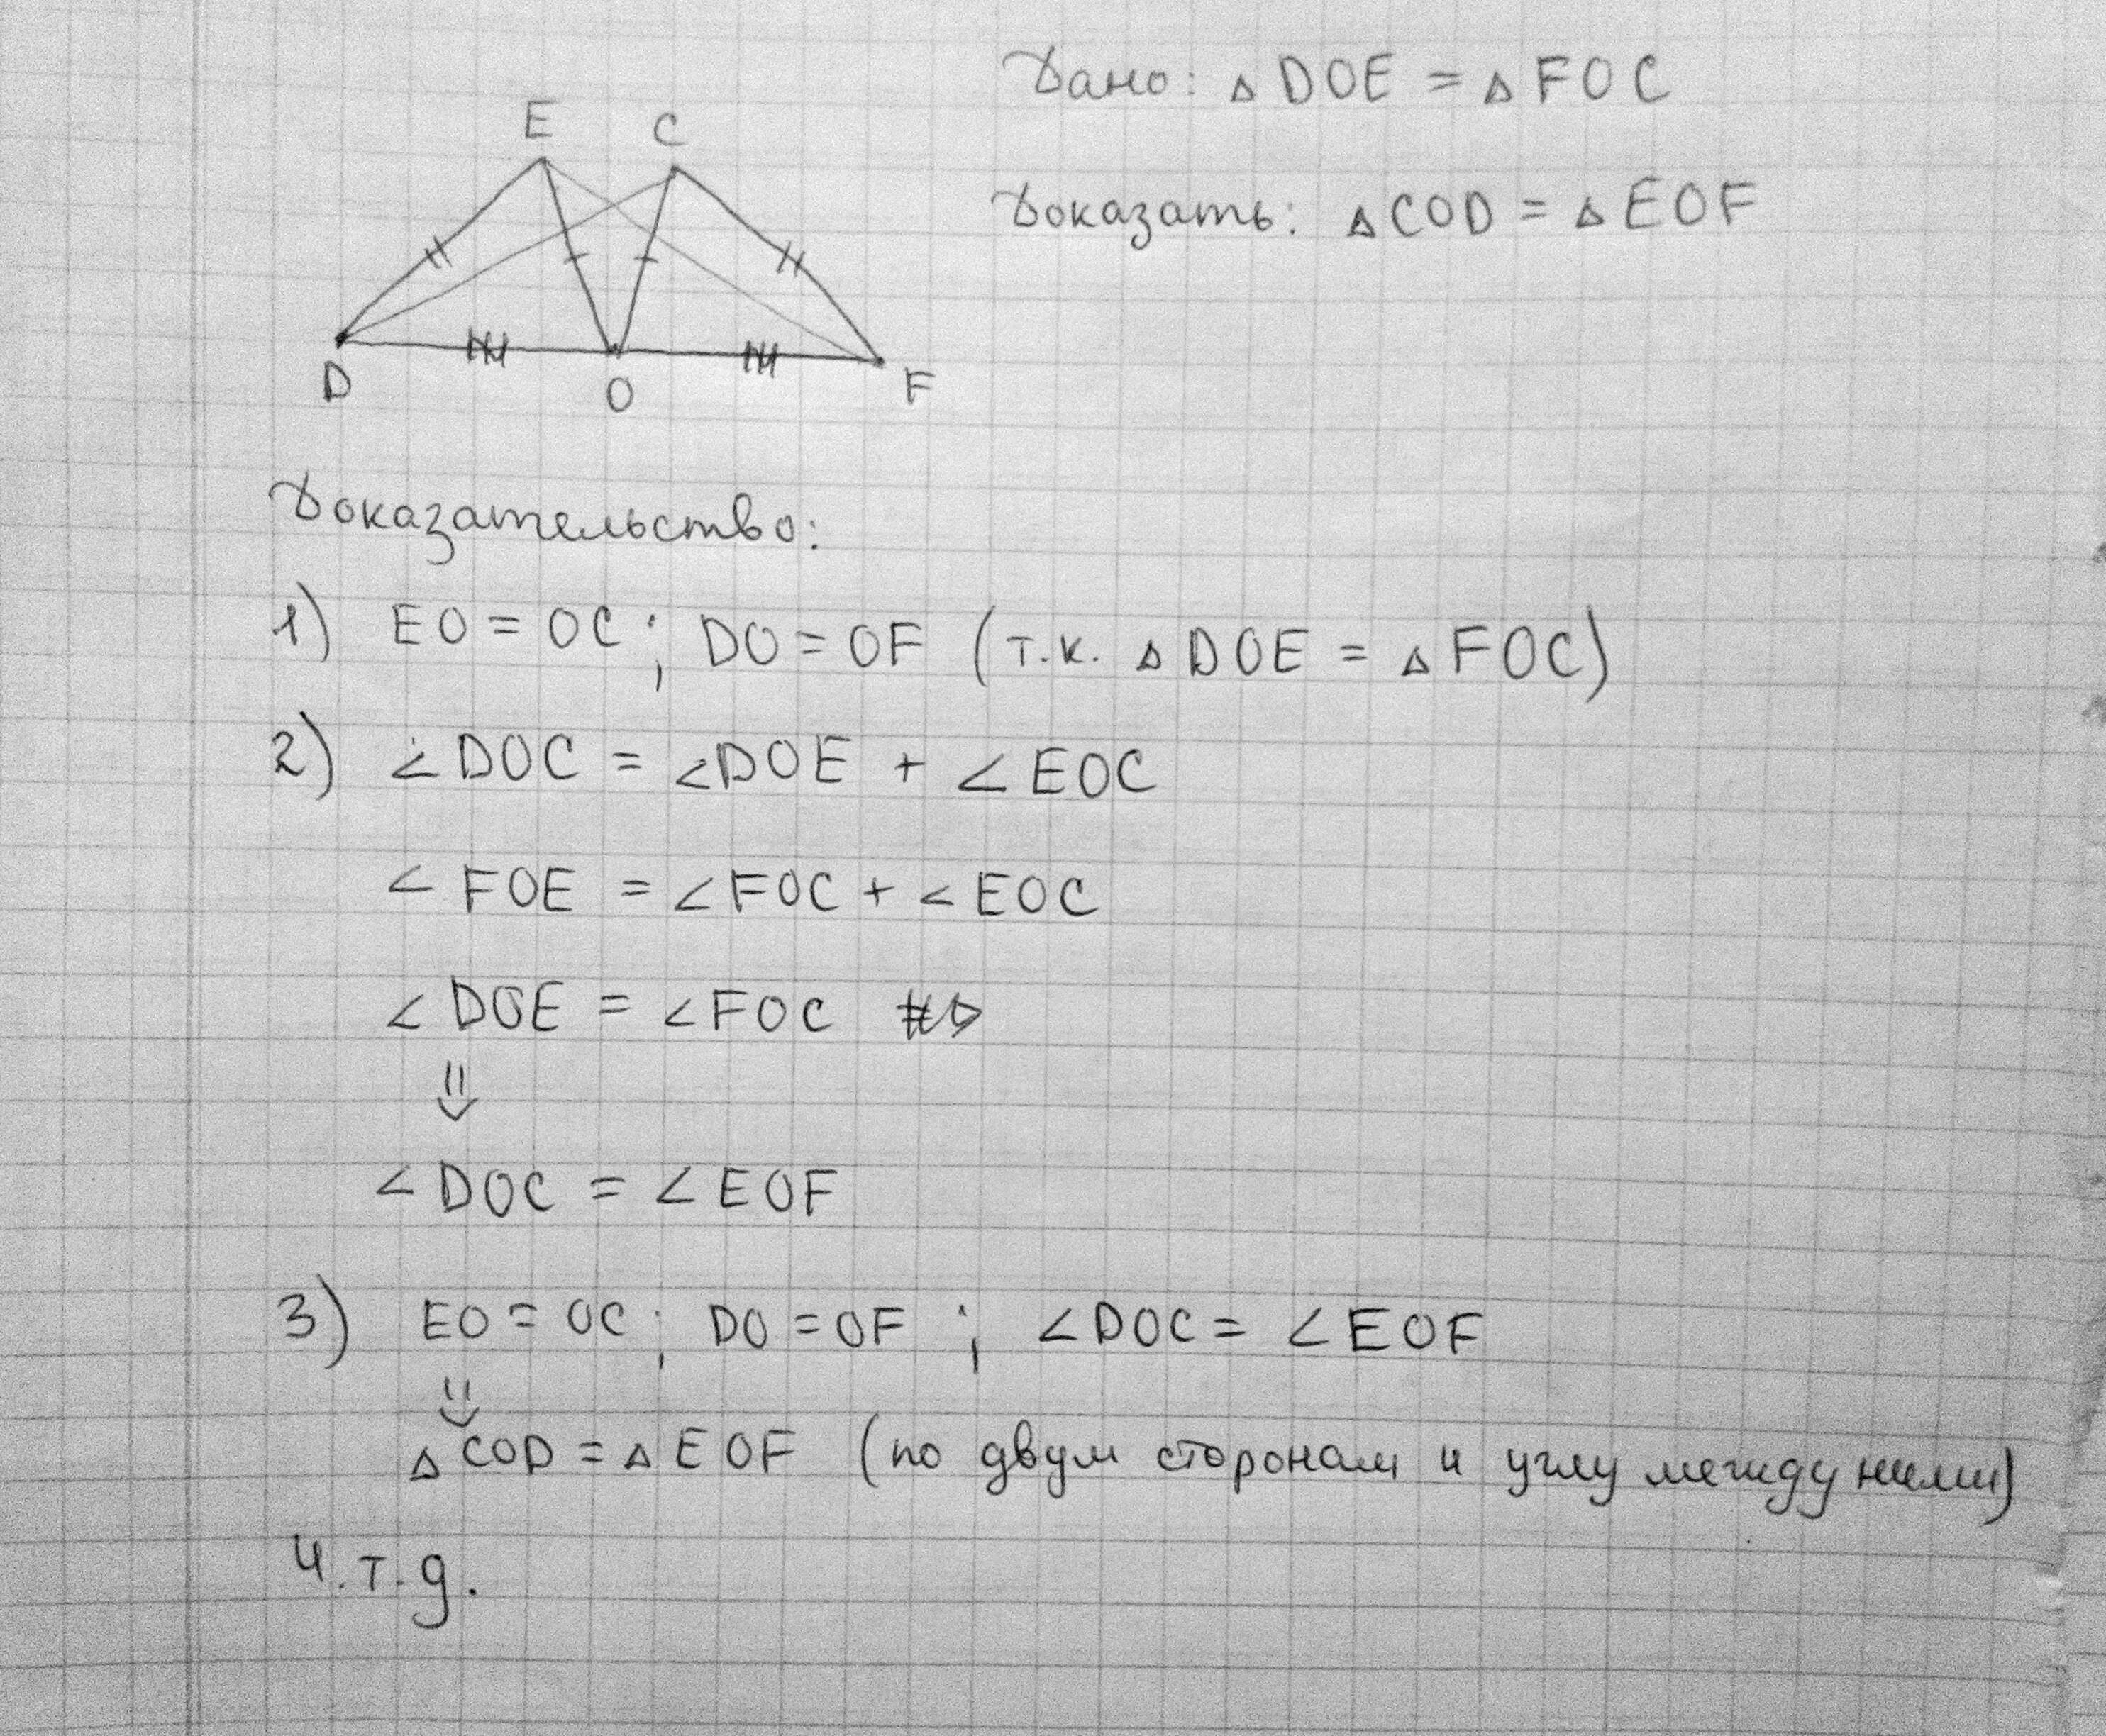 Дано: △ DOE = △ FOC
Доказать: △ COD = △ EOF
E C
D O F
Доказательство:
1) EO = OC ; DO = OF (т.к. △ DOE = △ FOC)
2) ∠ DOC = ∠ DOE + ∠ EOC
∠ FOE = ∠ FOC + ∠ EOC
∠ DOE = ∠ FOC
⇓
∠ DOC = ∠ EOF
3) EO = OC ; DO = OF ; ∠ DOC = ∠ EOF
⇓
△ COD = △ EOF (по двум сторонам и углу между ними)
Ч.т.д.